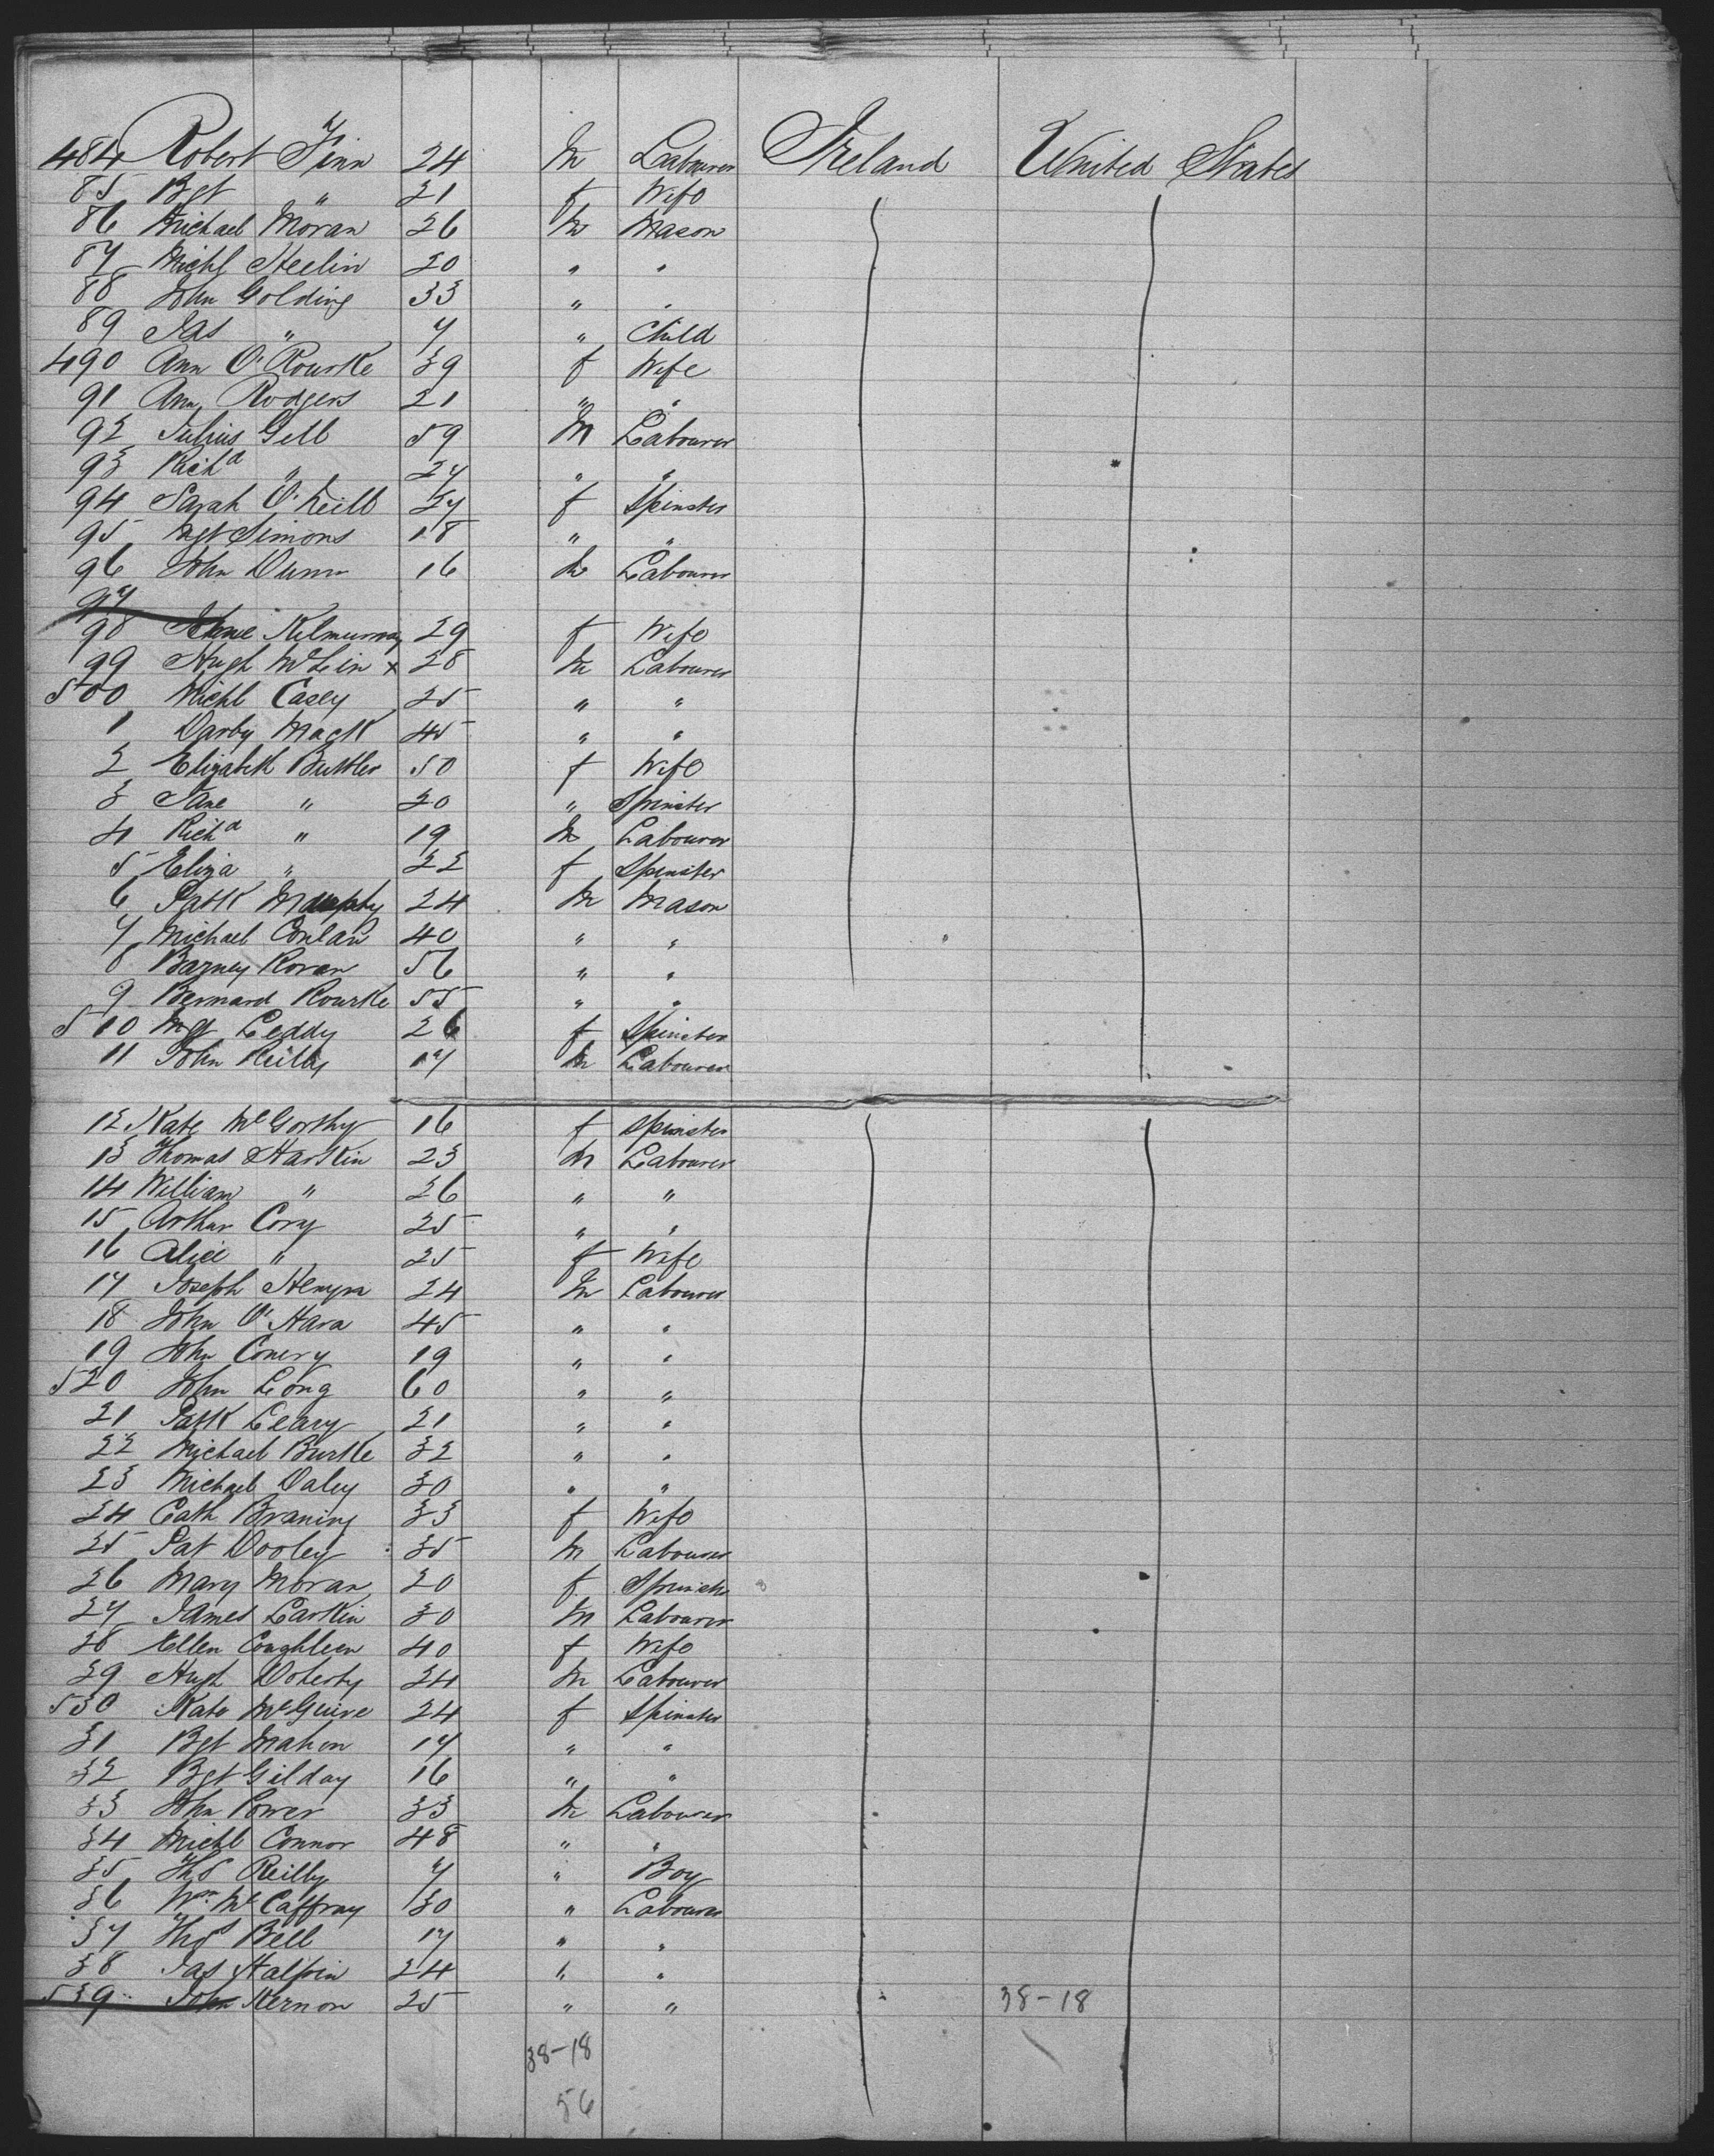 484 Robert Finn 24 m Labourer Ireland United States
85 Bgt " 21 f Wife
86 Michael Moran 26 m Mason
87 Michl Heelin 20 " "
88 John Golding 33 " "
89 Jas " 7 " Child
490 Ann O'Rourke 39 f Wife
91 Ann Rodgers 21 " "
92 Julius Gell 59 m Labourer
93 Richd " 27 " "
94 Sarah O'Neill 27 f Spinster
95 Mgt Simons 18 " "
96 John Dunn 16 m Labourer
97
98 Kilmurray 29 f Wife
99 Hugh McLin x 28 m Labourer
500 Michl Casey 25 " "
1 Darby Mack 45 " "
2 Elizabeth Buttler 50 f Wife
3 Jane " 20 " Spinster
4 Richd " 19 m Labourer
5 Eliza " 22 f Spinster
6 Patk Murphy 24 m Mason
7 Michael Conlan 40 " "
8 Barney Roran 56 " "
9 Bernard Rourke 55 " "
510 Mgt Leddy 26 f Spinster
11 John Reilly 17 m Labourer
12 Kate McGorthy 16 f Spinster
13 Thomas Harkin 23 m Labourer
14 William " 26 " "
15 Arthur Cory 25 " "
16 Alice " 25 f Wife
17 Joseph 24 m Labourer
18 John O'Hara 45 " "
19 John Conery 19 " "
520 John Long 60 " "
21 Patk Leary 21 " "
22 Michael Burke 32 " "
23 Michael Daley 30 " "
24 Cath Braning 33 f Wife
25 Pat Dooley 35 m Labourer
26 Mary Moran 20 f Spinster
27 James Larkin 30 m Labourer
28 Ellen Coughleen 40 f Wife
29 Hugh Doherty 24 m Labourer
530 Kate McGuire 24 f Spinster
31 Bgt Mahon 17 " "
32 Bgt Gilday 16 " "
33 John Power 33 m Labourer
34 Michl Connor 48 " "
35 Thos Reilly 7 " Boy
36 Wm McCaffray 30 " Labourer
37 Thos Bell 17 " "
38 Jas Halpin 24 " "
539 John Kernon 25 " " 38-18
38-18
56